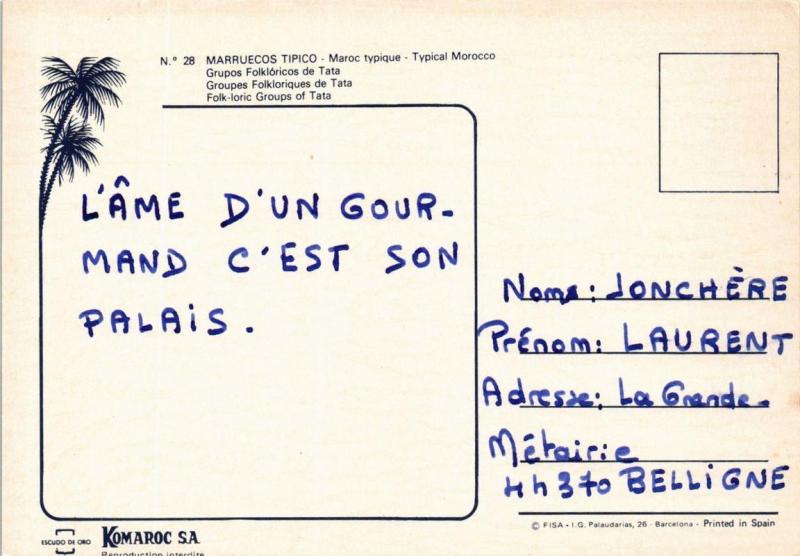 N.º 28 MARRUECOS TIPICO - Maroc typique - Typical Morocco
Grupos Folklóricos de Tata
Groupes Folkloriques de Tata
Folk-loric Groups of Tata
L'ÂME D'UN GOUR-
MAND C'EST SON
PALAIS.
Noms: JONCHÈRE
Prénom: LAURENT
Adresse: La Grande.
Métairie
44370 BELLIGNE
© FISA - I.G. Palaudarias, 26 - Barcelona - Printed in Spain
ESCUDO DE ORO KOMAROC S.A.
Reproduction interdite